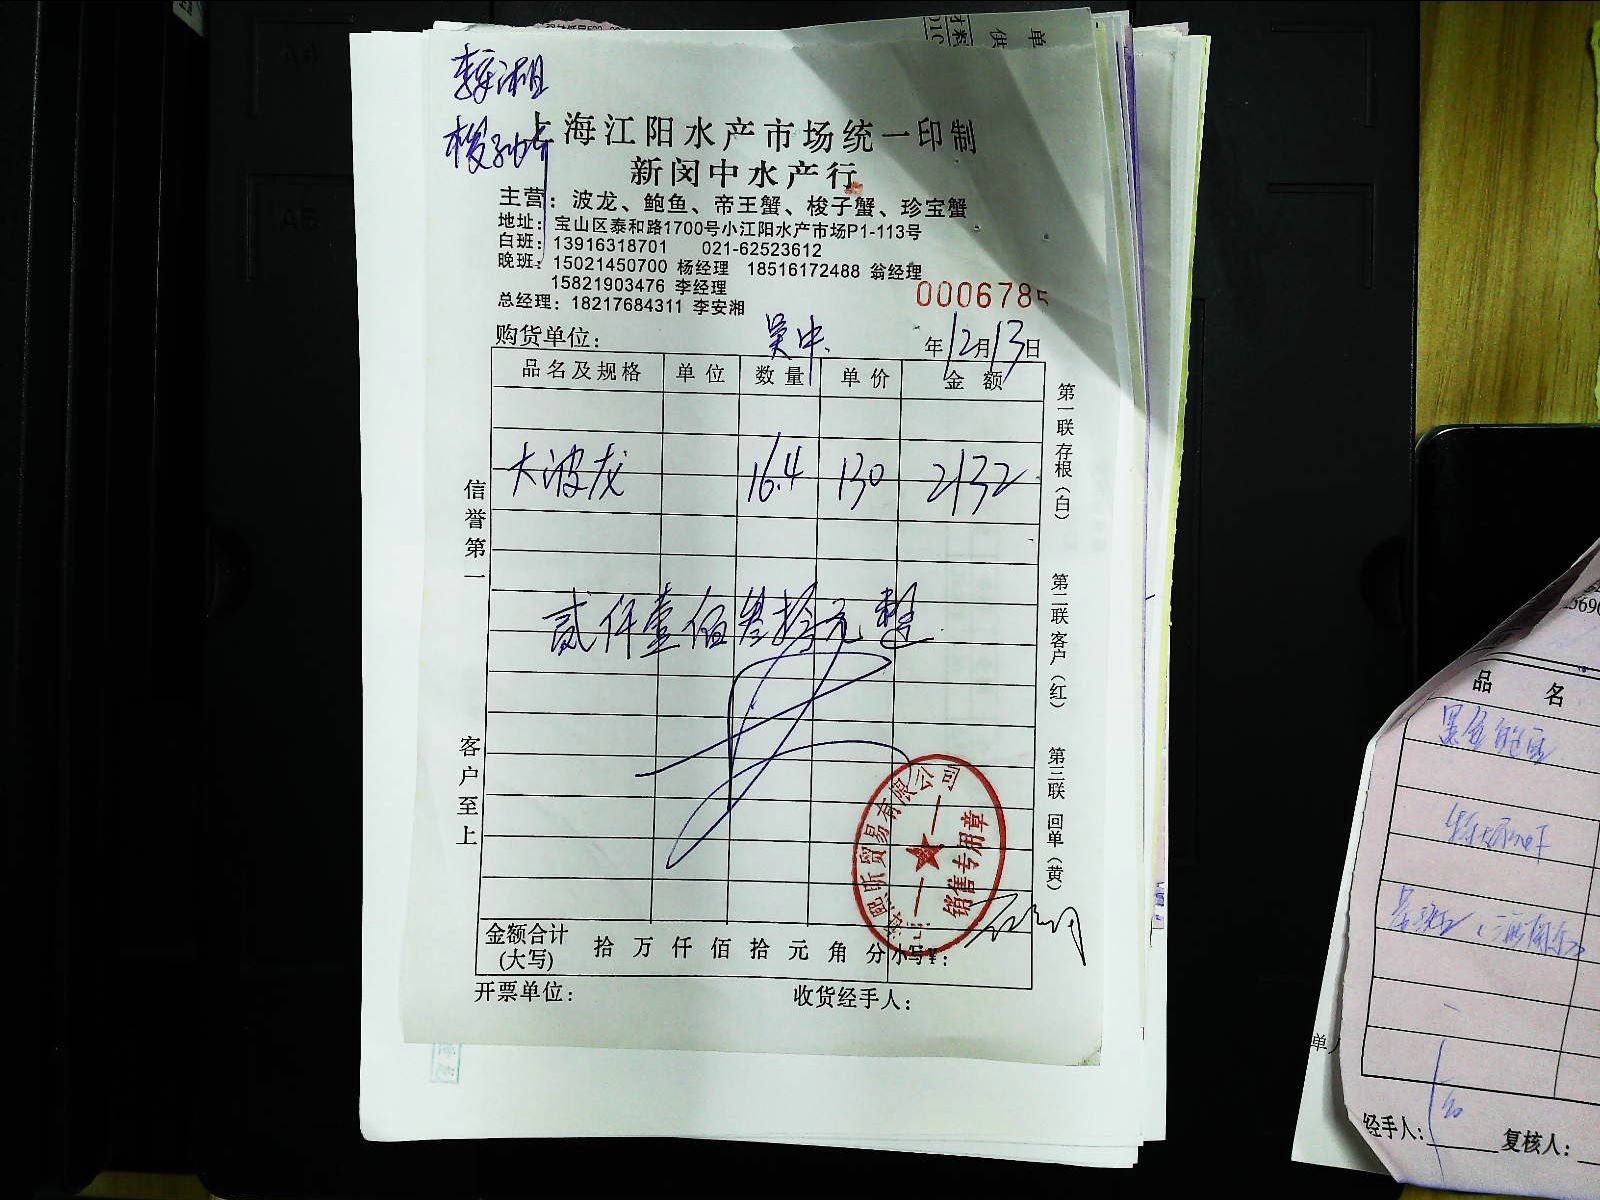 单
供
上海江阳水产市场统一印制
新闵中水产行
主营：波龙、鲍鱼、帝王蟹、梭子蟹、珍宝蟹
地址：宝山区泰和路1700号小江阳水产市场P1-113号
白班：13916318701 021-62523612
晚班：15021450700 杨经理 18516172488 翁经理
15821903476 李经理
总经理：18217684311 李安湘
0006785
购货单位： 吴中 年12月13日
品名及规格 单位 数量 单价 金额
大波龙 16.4 130 2132
贰仟壹佰叁拾元整
信誉第一
客户至上
第一联 存根（白）
第二联 客户（红）
第三联 回单（黄）
贸易有限公司
销售专用章
金额合计 拾 万 仟 佰 拾 元 角 分 小写¥：
(大写)
开票单位： 收货经手人：
品 名
单
经手人： 复核人：